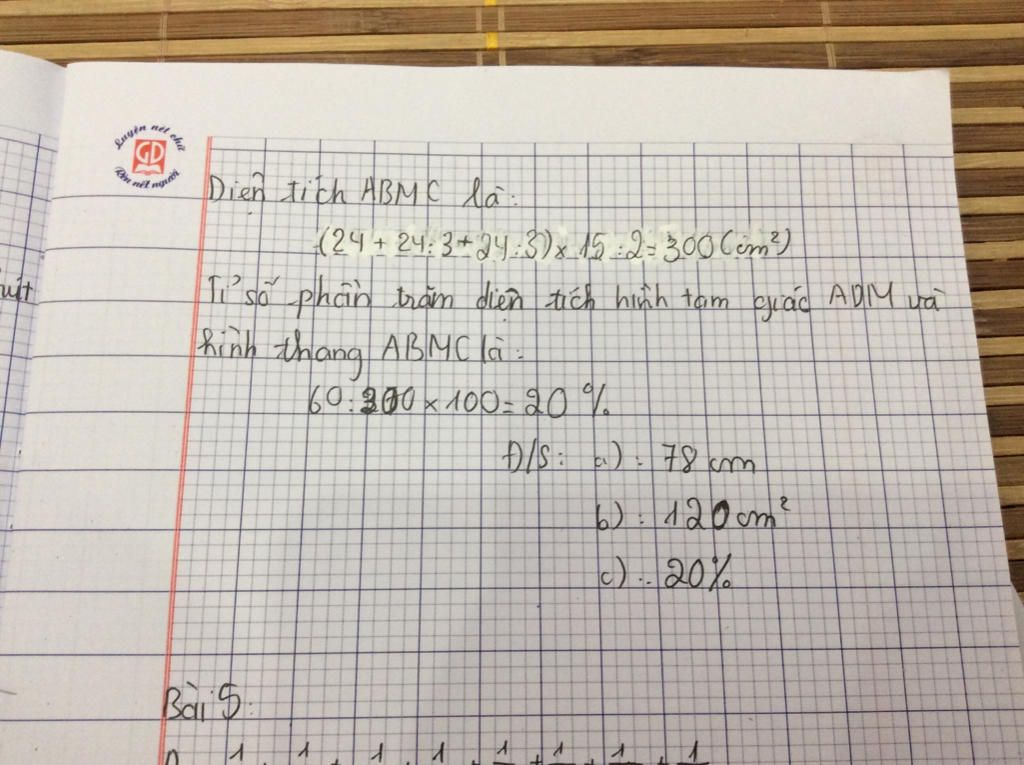 Luyện nét chữ
GD
Rèn nét người
Diện tích ABMC là:
(24 + 24:3 + 24:3) × 15 : 2 = 300 (cm²)
Tỉ số phần trăm diện tích hình tam giác ADM và
hình thang ABMC là:
60 : 300 × 100 = 20 %
Đ/S: a) : 78 cm
b) : 120 cm²
c) : 20%
Bài 5: